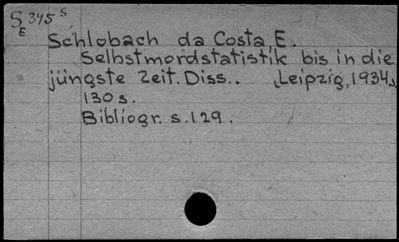 S 395 S
E
Schlobach da Costa E.
Selbstmordstatistik bis in die
jüngste Zeit. Diss.. Leipzig, 1934,
130 s.
Bibliogr. s. 129.